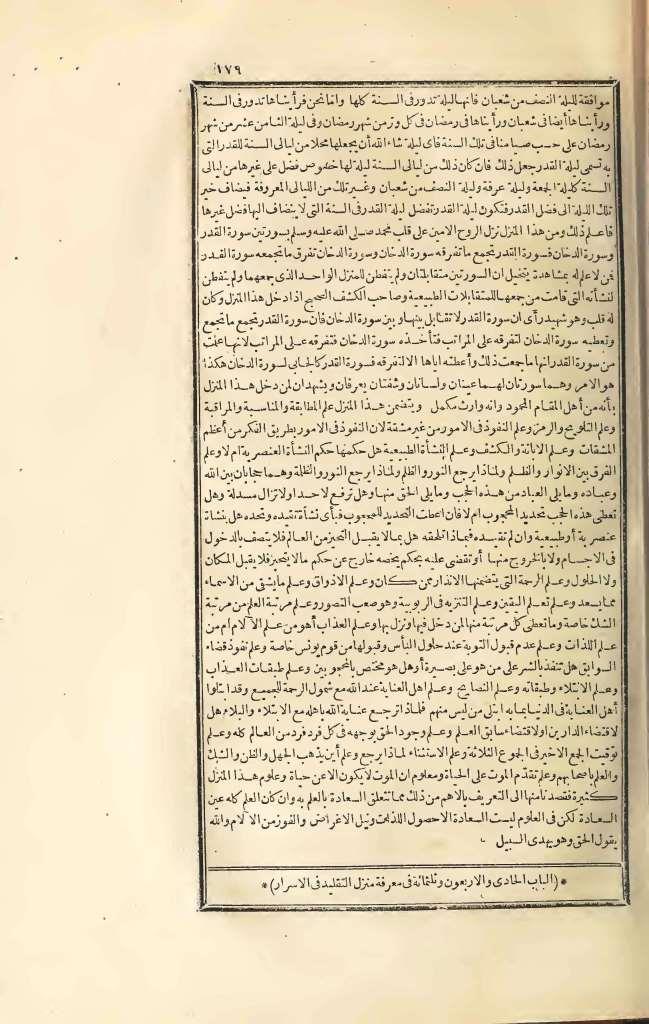 ١٧٩
موافقة لليلة النصف من شعبان فانها ليلة تدور في السنة كلها وامانحن فرأيناها تدور في السنة
ورأيناها أيضا في شعبان ورأيناها في رمضان في كل وتر من شهر رمضان وفي ليلة الثامن عشر من شهر
رمضان على حسب صيامنا في تلك السنة فأى ليلة شاء الله أن يجعلها محلا من ليالى السنة للقدر التى
به تسمى ليلة القدر جعل ذلك فان كان ذلك من ليالى السنة ليلة لها خصوص فضل على غيرها من ليالى
السنة كليلة الجمعة وليلة عرفة وليلة النصف من شعبان وغير تلك من الليالى المعروفة فيضاف خير
تلك الليلة الى فضل القدر فتكون ليلة القدر تفضل ليلة القدر في السنة التى لا ينضاف اليها فضل غيرها
فاعلم ذلك ومن هذا المنزل نزل الروح الامين على قلب محمد صلى الله عليه وسلم بسورتين سورة القدر
وسورة الدخان فسورة القدر تجمع ما تفرقه سورة الدخان وسورة الدخان تفرق ما تجمعه سورة القدر
فمن لا علم له بمشاهدة يتخيل ان السورتين متقابلتان ولم يتفطن للمنزل الواحد الذى جمعهما ولم يتفطن
لنشأته التى قامت من جمعها للمتقابلات الطبيعية وصاحب الكشف الصحيح اذا دخل هذا المنزل وكان
له قلب وهو شهيد رأى ان سورة القدر لا تقابل بينها وبين سورة الدخان فان سورة القدر تجمع ما تجمع
وتعطيه سورة الدخان لتفرقه على المراتب فتأخذه سورة الدخان فتفرقه على المراتب لانها علمت
من سورة القدر انها ما جمعت ذلك وأعطته اياها الا لتفرقه فسورة القدر كالجابى لسورة الدخان هكذا
هو الامر وهما سورتان لهما عينان ولسانان وشفتان يعرفان ويشهدان لمن دخل هذا المنزل
بأنه من أهل المقام المحمود وانه وارث مكمل ويتضمن هذا المنزل علم المطابقة والمناسبة والمراقبة
وعلم التلويح والرمز وعلم النفوذ في الامور من غير مشقة لان النفوذ في الامور بطريق الفكر من أعظم
المشقات وعلم الابانة والكشف وعلم النشأة الطبيعية هل حكمها حكم النشأة العنصرية أم لا وعلم
الفرق بين الانوار والظلم ولماذا يرجع النور والظلم ولماذا يرجع النور والظلمة وهما حجابان بين الله
وعباده وما يلى العباد من هذه الحجب وما يلى الحق منها وهل ترفع لاحد او لا تزال مسدلة وهل
تعطى هذه الحجب تحديد المحجوب أم لا فان اعطت التحديد للمحجوب فبأى نشأة تقيده وتحده هل بنشأة
عنصرية أو طبيعية وان لم تقيده فبماذا تلحقه هل بما لا يقبل التحيز من العالم فلا يتصف بالدخول
في الاجسام ولا بالخروج منها أو تقضى عليه بحكم يخصه خارج عن حكم ما لا يتحيز فلا يقبل المكان
ولا الحلول وعلم الرحمة التى يتضمنها الانذار ممن كان وعلم الاذواق وعلم ما يشقى من الاسماء
مما يسعد وعلم تعلم اليقين وعلم التنزيه في الربوبية وهو صعب التصور وعلم مرتبة العلم من مرتبة
الشك خاصة وما تعطى كل مرتبة منها لمن دخل فيها ونزل بها وعلم العذاب أهو من علم الآلام أم من
علم اللذات وعلم عدم قبول التوبة عند حلول البأس وقبولها من قوم يونس خاصة وعلم نفوذ قضاء
السوابق هل تنفذ بالشر على من هو على بصيرة أو هل هو مختص بالمحجوبين وعلم طبقات العذاب
وعلم الابتلاء وطبقاته وعلم النصايح وعلم اهل العناية عند الله مع شمول الرحمة للجميع وقد ابتلوا
أهل العناية في الدنيا بما به ابتلى من ليس منهم فلماذا ترجع عناية الله باهله مع الابتلاء والبلاء هل
لاقتضاء الدارين او لاقتضاء سابق العلم وعلم وجود الحق بوجهه في كل فرد فرد من العالم كله وعلم
توقيت الجمع الاخير في الجموع الثلاثة وعلم الاستثناء لماذا يرجع وعلم أين يذهب الجهل والظن والشك
والعلم باصحابهم وعلم تقدم الموت على الحياة ومعلوم ان الموت لا يكون الا عن حياة وعلوم هذا المنزل
كثيرة فقصدنا منها الى التعريف بالاهم من ذلك مما تتعلق السعادة بالعلم به وان كان العلم كله عين
السعادة لكن في العلوم ليست السعادة الا حصول اللذات ونيل الاغراض والفوز من الآلام والله
يقول الحق وهو يهدى السبيل
* (الباب الحادى والاربعون وثلثمائة في معرفة منزل التقليد في الاسرار) *